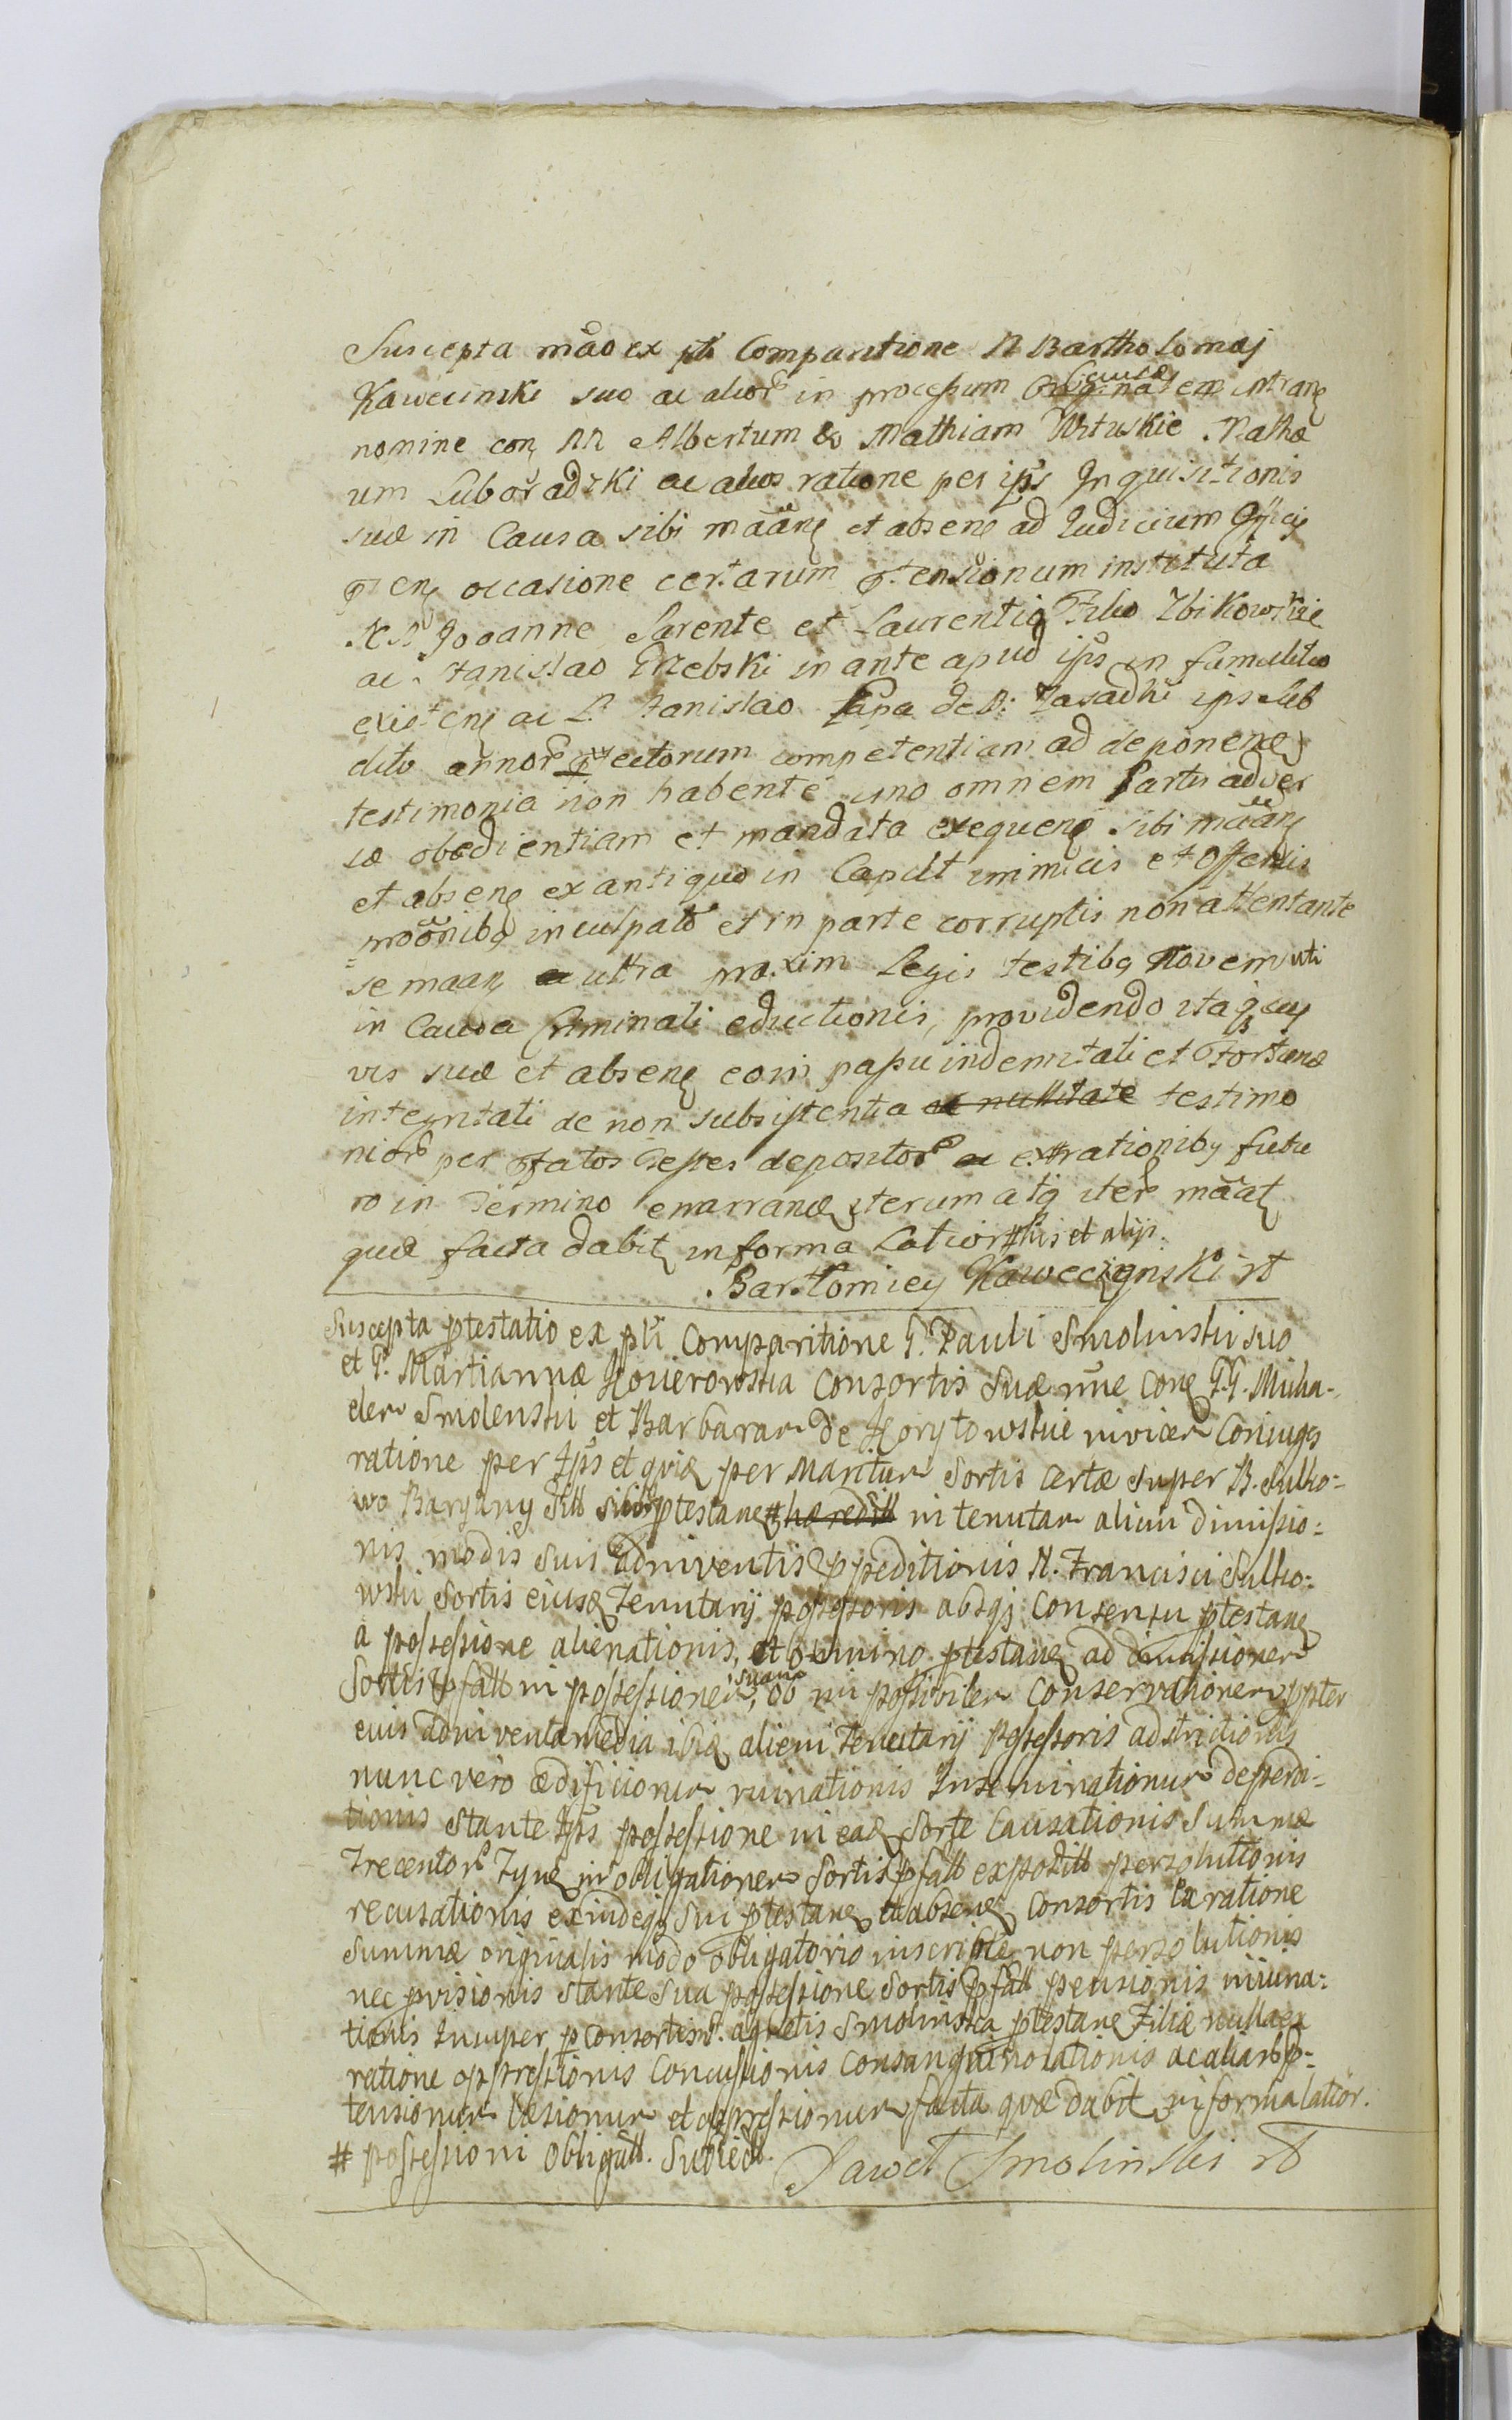 Suscepta mâo ex pti Comparitione N Bartholomaj
Kawecinski suo ac alior in processum Originalem causæ intranę
nomine con NN Albertum & Mathiam Wituskie Natha
um Luboradzki ac alios ratione per ips Inquisitionis
suæ in Causa sibi mâanę et absenę ad Iudicium
occasione certarum ptensionum instituta
NN Joanne Parente et Laurentio Filio Zbikowskie
ac Stanislao Grzebski in ante apud ips in famulitio
existenę ac L. Stanislao Papa de V. Zasadki ips sub
dito annor pvectorum competentiam ad deponenę
testimonia non habente imo omnem Partis adver
sæ obedientiam et mandata exequenę sibi mâanę
et absenę ex antiquo in Caput inimicis et Offensis
mõonibq inculpato et in parte corruptis non attentante
se maanę ac ultra maxim Legis testibq Novem uti
in Causa Criminali eductionis, providendo itaq cuj
vis suæ et absenę eoin passu indemnitati et Fortunæ
integritati de non subsistentia et nullitate testimo
nior per pfatos Testes depositor ac extrationibq futu
ro in Termino enarrandę iterum atq iter mâat
quæ facta dabit in forma Latiori his et alijs.
Bartłomiey Kaweczynski rt
Suscepta ptestatio ex pti Comparitione G. Pauli Smolinski suo
et G. Martiannæ Gouierowska Consortis Suæ nne Conę G.G. Micha-
elem Smolenski et Barbaram de Gorytowskie invicem Coniuges
ratione per Ips et quię per Maritum Sortis certæ super B. Sulko-
wo Baryany Sitt sibi ptestanę # hæreditt in tenutam alicui dimissio-
nis modis suis adinventis ppeditionis N. Francisci Sulko-
wski Sortis eiusę Tenutarij possessoris absq Consensu ptestanę
a possessione alienationis, et omnino ptestanę ad dimissionem
Sortis pfatt in possessionem suam, ob impossibilem Conservationem ppter
cuis adinventa media ibię alieni Tenutarij possessoris adstrictionis
nunc vero ædificiorum ruinationis Inseminationum deperdi-
tionis Stante Ips possessione in eaę Sorte Causationis Summæ
Trecentor Tynę in obligationem Sortis pfatt expositt persolutionis
recusationis exindeq sui ptestanę et absenę Consortis Ex ratione
Summæ originalis modo obligatorio inscriptę non persolutionis
nec pvisionis Stante Sua possessione Sortis pfatt pensionis iniuna-
tionis Insuper p Consortem Agnetis Smolinska ptestanę Filiæ nulla ex
ratione oppressionis Concussionis Consanguinolationis ac aliar p-
tensionum læsionum et oppressionum facta quæ dabit in forma latior.
# possessioni Obligatt. Subiect.
Paweł Smolinski rt